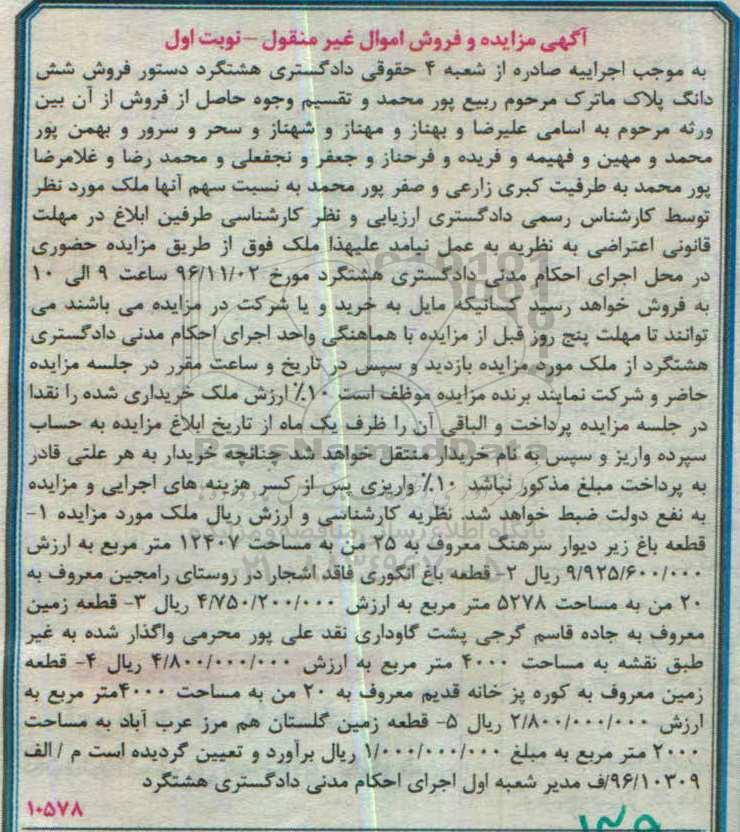 آگهی مزایده و فروش اموال غیر منقول - نوبت اول
به موجب اجراییه صادره از شعبه ۴ حقوقی دادگستری هشتگرد دستور فروش شش
دانگ پلاک ماترک مرحوم ربیع پور محمد و تقسیم وجوه حاصل از فروش از آن بین
ورثه مرحوم به اسامی علیرضا و بهناز و مهناز و شهناز و سحر و سرور و بهمن پور
محمد و مهین و فهیمه و فریده و فرحناز و جعفر و نجفعلی و محمد رضا و غلامرضا
پور محمد به طرفیت کبری زارعی و صفر پور محمد به نسبت سهم آنها ملک مورد نظر
توسط کارشناس رسمی دادگستری ارزیابی و نظر کارشناسی طرفین ابلاغ در مهلت
قانونی اعتراضی به نظریه به عمل نیامد علیهذا ملک فوق از طریق مزایده حضوری
در محل اجرای احکام مدنی دادگستری هشتگرد مورخ ۹۶/۱۱/۰۲ ساعت ۹ الی ۱۰
به فروش خواهد رسید کسانیکه مایل به خرید و یا شرکت در مزایده می باشند می
توانند تا مهلت پنج روز قبل از مزایده با هماهنگی واحد اجرای احکام مدنی دادگستری
هشتگرد از ملک مورد مزایده بازدید و سپس در تاریخ و ساعت مقرر در جلسه مزایده
حاضر و شرکت نمایند برنده مزایده موظف است ۱۰٪ ارزش ملک خریداری شده را نقدا
در جلسه مزایده پرداخت و الباقی آن را ظرف یک ماه از تاریخ ابلاغ مزایده به حساب
سپرده واریز و سپس به نام خریدار منتقل خواهد شد چنانچه خریدار به هر علتی قادر
به پرداخت مبلغ مذکور نباشد ۱۰٪ واریزی پس از کسر هزینه های اجرایی و مزایده
به نفع دولت ضبط خواهد شد. نظریه کارشناسی و ارزش ریال ملک مورد مزایده ۱-
قطعه باغ زیر دیوار سرهنگ معروف به ۲۵ من به مساحت ۱۲۴۰۷ متر مربع به ارزش
۹/۹۲۵/۶۰۰/۰۰۰ ریال ۲- قطعه باغ انگوری فاقد اشجار در روستای رامجین معروف به
۲۰ من به مساحت ۵۲۷۸ متر مربع به ارزش ۴/۷۵۰/۲۰۰/۰۰۰ ریال ۳- قطعه زمین
معروف به جاده قاسم گرجی پشت گاوداری نقد علی پور محرمی واگذار شده به غیر
طبق نقشه به مساحت ۴۰۰۰ متر مربع به ارزش ۴/۸۰۰/۰۰۰/۰۰۰ ریال ۴- قطعه
زمین معروف به کوره پز خانه قدیم معروف به ۲۰ من به مساحت ۴۰۰۰متر مربع به
ارزش ۲/۸۰۰/۰۰۰/۰۰۰ ریال ۵- قطعه زمین گلستان هم مرز عرب آباد به مساحت
۲۰۰۰ متر مربع به مبلغ ۱/۰۰۰/۰۰۰/۰۰۰ ریال برآورد و تعیین گردیده است م / الف
۹۶/۱۰۳۰۹/ف مدیر شعبه اول اجرای احکام مدنی دادگستری هشتگرد
۱۰۵۷۸
ParsNamadData